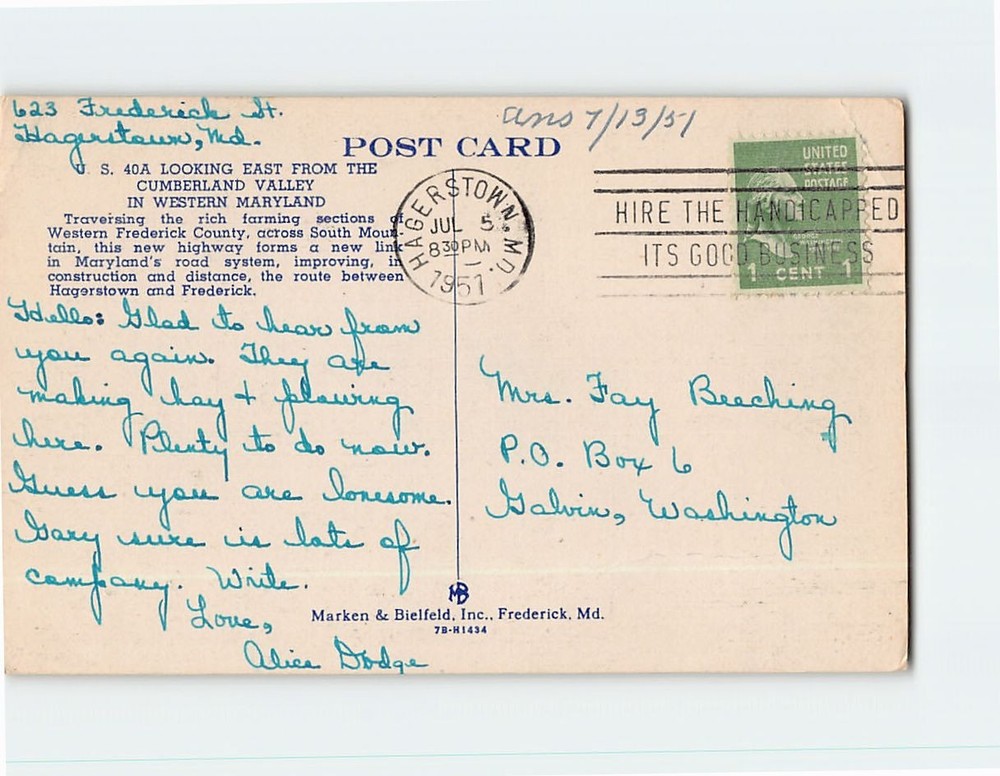 623 Frederick St.
Hagerstown, Md.
ans 7/13/51
POST CARD
U. S. 40A LOOKING EAST FROM THE
CUMBERLAND VALLEY
IN WESTERN MARYLAND
Traversing the rich farming sections of
Western Frederick County, across South Moun-
tain, this new highway forms a new link
in Maryland's road system, improving, in
construction and distance, the route between
Hagerstown and Frederick.
HAGERSTOWN, MD.
JUL 5
8 30 PM
1951
HIRE THE HANDICAPPED
ITS GOOD BUSINESS
UNITED
STATES
POSTAGE
1 CENT 1
Hello: Glad to hear from
you again. They are
making hay & plowing
here. Plenty to do now.
Guess you are lonesome.
Gary sure is lots of
company. Write.
Love,
Alice Dodge
Mrs. Fay Beeching
P.O. Box 6
Galvin, Washington
MB
Marken & Bielfeld, Inc., Frederick, Md.
7B-H1434